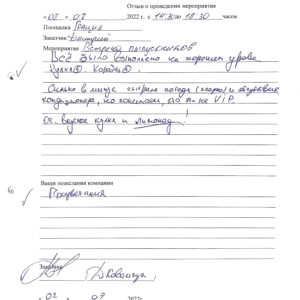 Отзыв о проведении мероприятия
«02» 07 2022 г. с 14:30 до 18:30 часов
Площадка Грация
Заказчик Дмитрий
Мероприятие Встреча выпускников
Всё было выполнено на хорошем уровне
Кухня
Сильно в минус сыграла погода (жара) и отсутствие
кондиционера, но понимаем, что это не VIP.
Ос. вкусная кухня и лимонад!
Ваши пожелания компании
Процветания
Заказчик
«02» 07 2022г.